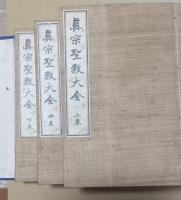 眞宗聖教大全 上卷
眞宗聖教大全 中卷
眞宗聖教大全 下卷